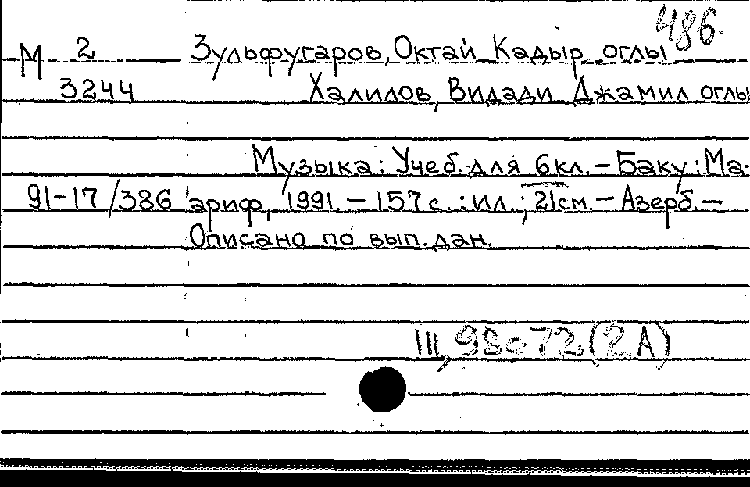 486
М 2 Зульфугаров, Октай Кадыр оглы
3244 Халилов, Видади Джамил оглы
Музыка: Учеб. для 6 кл. – Баку : Ма-
91-17/386 ариф, 1991. – 157 с. : ил ; 21 см. – Азерб. –
Описано по вып. дан.
III, 98с72(2А)